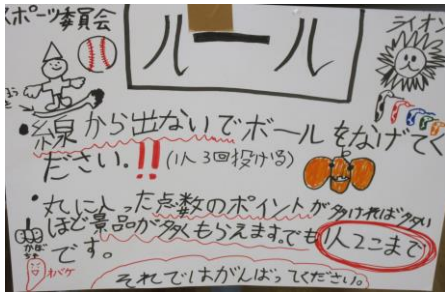 スポーツ委員会
ルール
ライオン
・線から出ないでボールをなげてく
ださい.!!(1人3回投げる)
・丸に入った点数のポイントが多ければ多い
ほど景品が多くもらえます。でも1人2こまで
です。
かぼちゃ
オバケ
それではがんばってください。